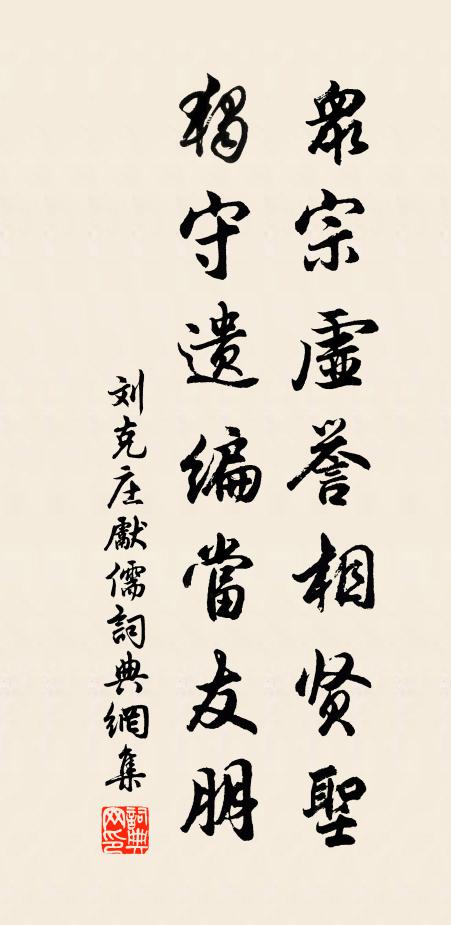 衆宗虛誉相贤聖
獨守遗编當友朋
刘克庄獻儒詞典網集
詞典網印